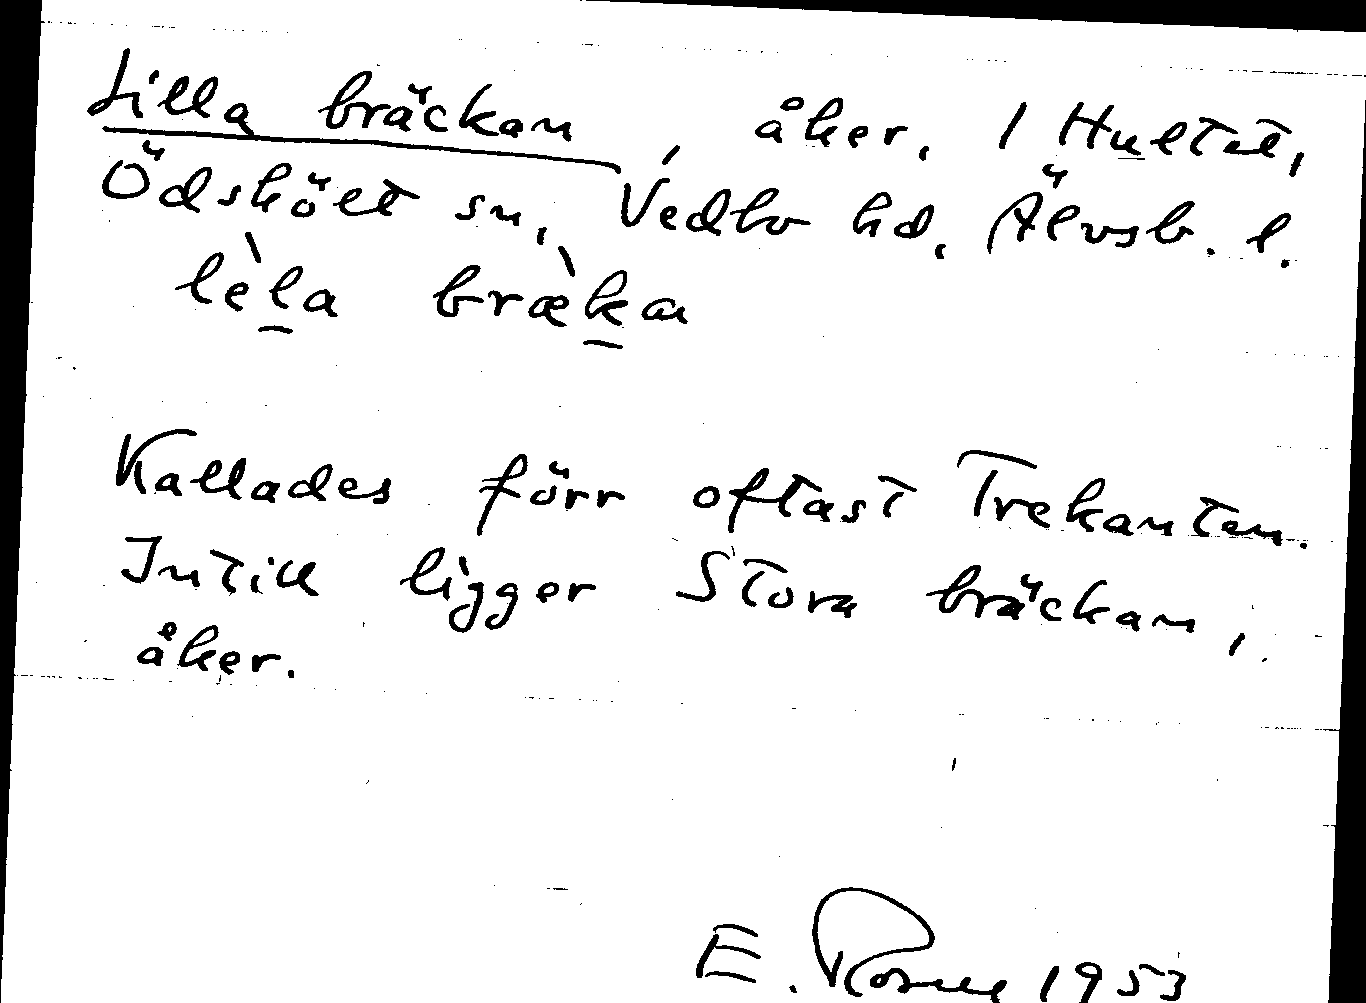 Lilla bräckan, åker, 1 Hultet,
Ödskölt sn, Vedbo hd, Älvsb. l.
lèla bræ̀ka
Kallades förr oftast Trekanten.
Intill ligger Stora bräckan,
åker.
E. 1953